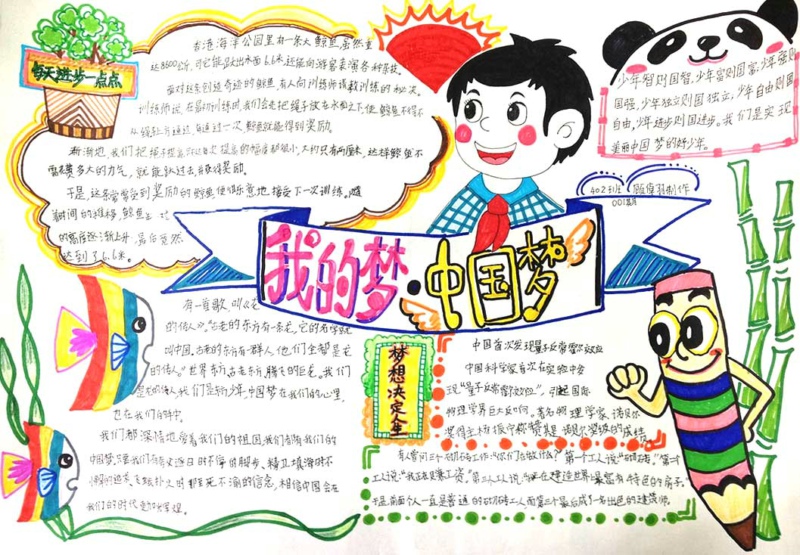 每天进步一点点
香港海洋公园里有一条大鲸鱼,虽然重
达8600公斤,可它能跃出水面6.6米,还能向游客表演各种杂技。
面对这条创造奇迹的鲸鱼,有人向训练师请教训练的秘决。
训练师说,在最初训练时,我们会先把绳子放在水面之下,使鲸鱼不得不
从绳子上通过,每通过一次,鲸鱼就能得到奖励。
渐渐地,我们把绳子提高,只不过每次提高的幅度都很小,大约只有两厘米,这样鲸鱼不
需花费多大的力气,就能跃过去,并获得奖励。
于是,这条常常受到奖励的鲸鱼便很乐意地接受下一次训练。随
着时间的推移,鲸鱼
的高度逐渐上升,最后竟然
达到了6.6米。
少年智则国智,少年富则国富,少年强则
国强,少年独立则国独立,少年自由则国
自由,少年进步则国进步。我们是实现
美丽中国梦的好少年。
402班
制作
001期
我的梦·中国梦
有一首歌,叫《龙
的传人》。“古老的东方有一条龙,它的名字就
叫中国。古老的东方有一群人,他们全都是龙
的传人。”世界东方,古老东方,腾飞的巨龙,我们
是龙的传人,我们是
少年,中国梦在我们的心里,
也在我们的
中。
我们都深情地
着我们的祖国,我们都有我们的
中国梦,只要我们有夸父逐日的不停的脚步、精卫填海时不
懈的追求、
时那至死不渝的信念,相信中国会在
我们的时代变的更辉煌。
梦想决定人生
中国首次发现量子反常霍尔效应
中国科学家首次在实验中发
现“量子反常霍尔效应”,引起国际
物理学界巨大反响。著名物理学家、诺贝尔
奖得主杨振宁称赞是诺贝尔奖级的成绩。
有人曾问三个砌砖工作:“你们在做什么?”第一个工人说:“砌砖。”第二个
工人说:“我正在赚工资。”第三个工人说:“我正在建造世界上最富有特色的房子。”
于是,前面个人一直是普通的砌砖工人,而第三个最后成了一名出色的建筑师。